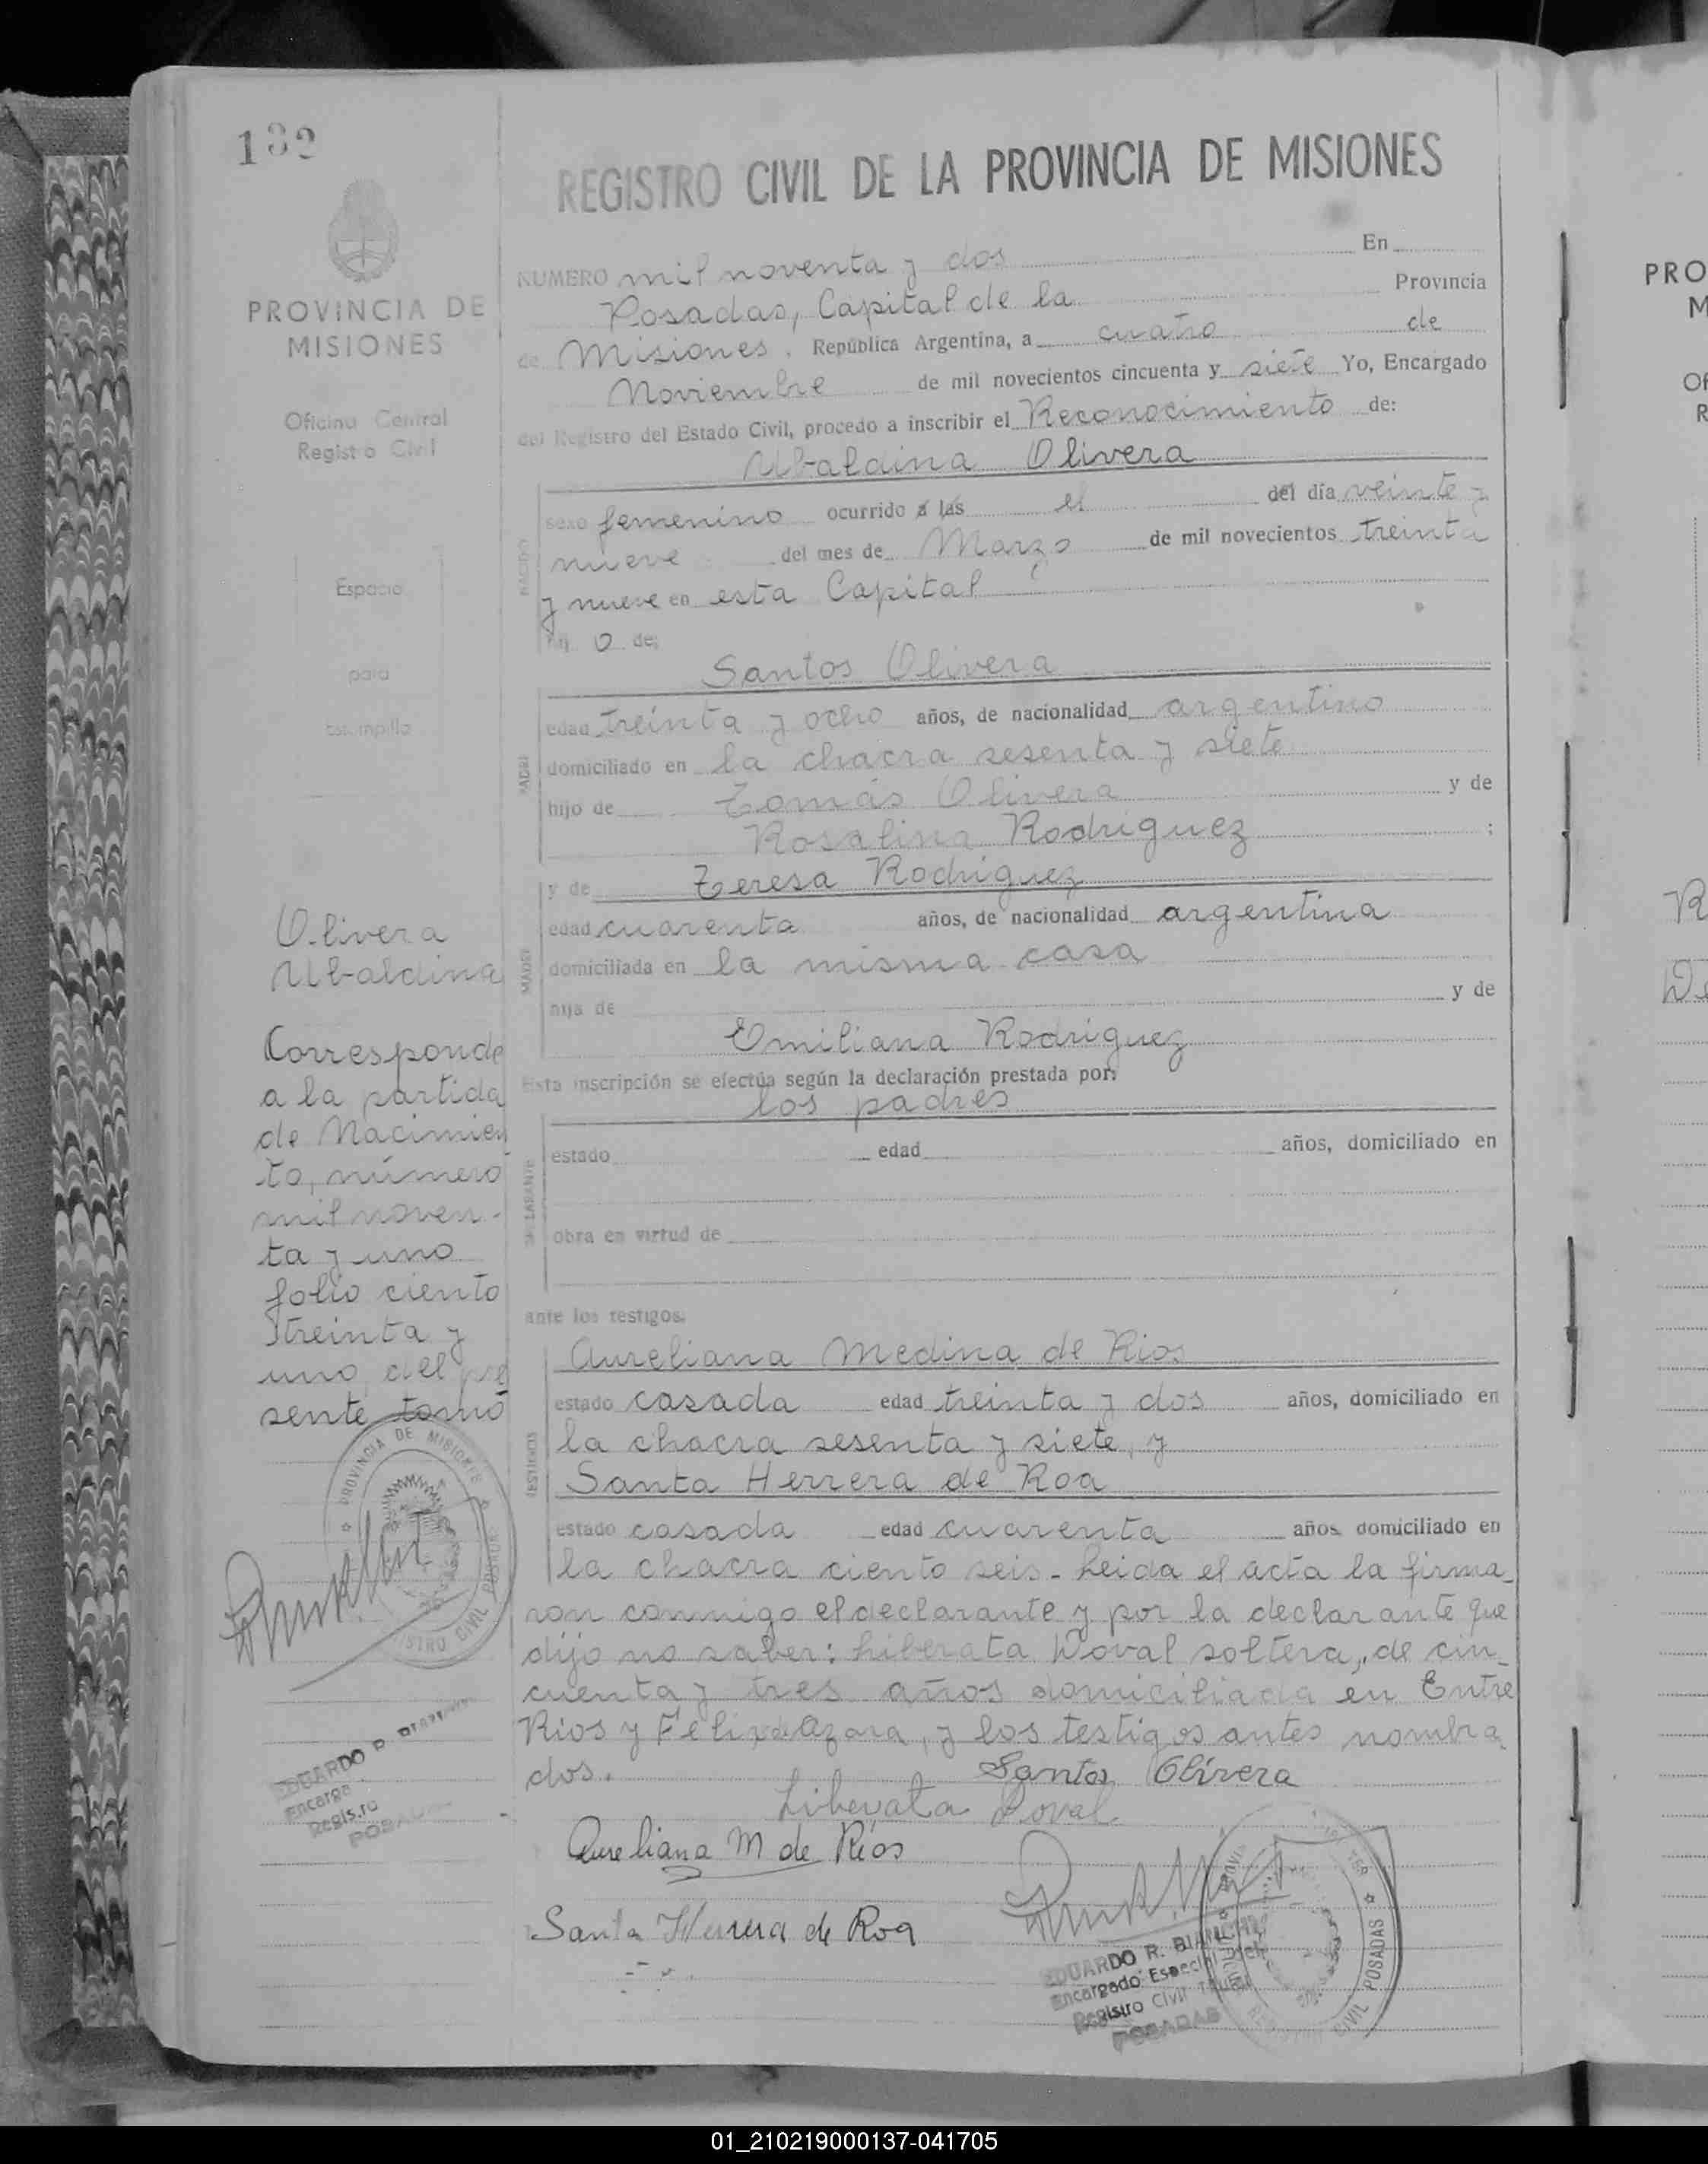 132
PROVINCIA DE
MISIONES
Oficina Central
Registro Civil
Espacio
para
estampilla
Olivera
Ubaldina
Corresponde
a la partida
de Nacimien
to, número
mil noven-
ta y uno
folio ciento
treinta y
uno del pre
sente tomo
PROVINCIA DE MISIONES
REGISTRO CIVIL POSADAS
EDUARDO R.
Encarga
Regis.ro
POSA
REGISTRO CIVIL DE LA PROVINCIA DE MISIONES
NUMERO mil noventa y dos En
Posadas, Capital de la Provincia
de Misiones. República Argentina, a cuatro de
Noviembre de mil novecientos cincuenta y siete Yo, Encargado
del Registro del Estado Civil, procedo a inscribir el Reconocimiento de:
Ubaldina Olivera
NACIDO
sexo femenino ocurrido a las el del día veinte y
nueve del mes de Marzo de mil novecientos treinta
y nueve en esta Capital
hij o de:
Santos Olivera
PADRE
edad treinta y ocho años, de nacionalidad argentino
domiciliado en la chacra sesenta y siete
hijo de Tomás Olivera y de
Rosalina Rodriguez ;
y de Teresa Rodriguez
MADRE
edad cuarenta años, de nacionalidad argentina
domiciliada en la misma casa
hija de y de
Emiliana Rodriguez
Esta inscripción se efectúa según la declaración prestada por:
los padres
DECLARANTE
estado edad años, domiciliado en
obra en virtud de
ante los testigos:
Aureliana Medina de Rios
TESTIGOS
estado casada edad treinta y dos años, domiciliado en
la chacra sesenta y siete, y
Santa Herrera de Roa
estado casada edad cuarenta años domiciliado en
la chacra ciento seis - Leida el acta la firma-
ron conmigo el declarante y por la declarante que
dijo no saber: Liberata Doval soltera, de cin-
cuenta y tres años domiciliada en Entre
Rios y Felix de Azara, y los testigos antes nombra
dos.
Santos Olivera
Liberata Doval
Aureliana M de Rios
Santa Herrera de Roa
EDUARDO R. BIANCHI
Encargado Especial del
Registro Civil
POSADAS
CIVIL POSADAS
PRO
M
Of
R
R
De
01_210219000137-041705